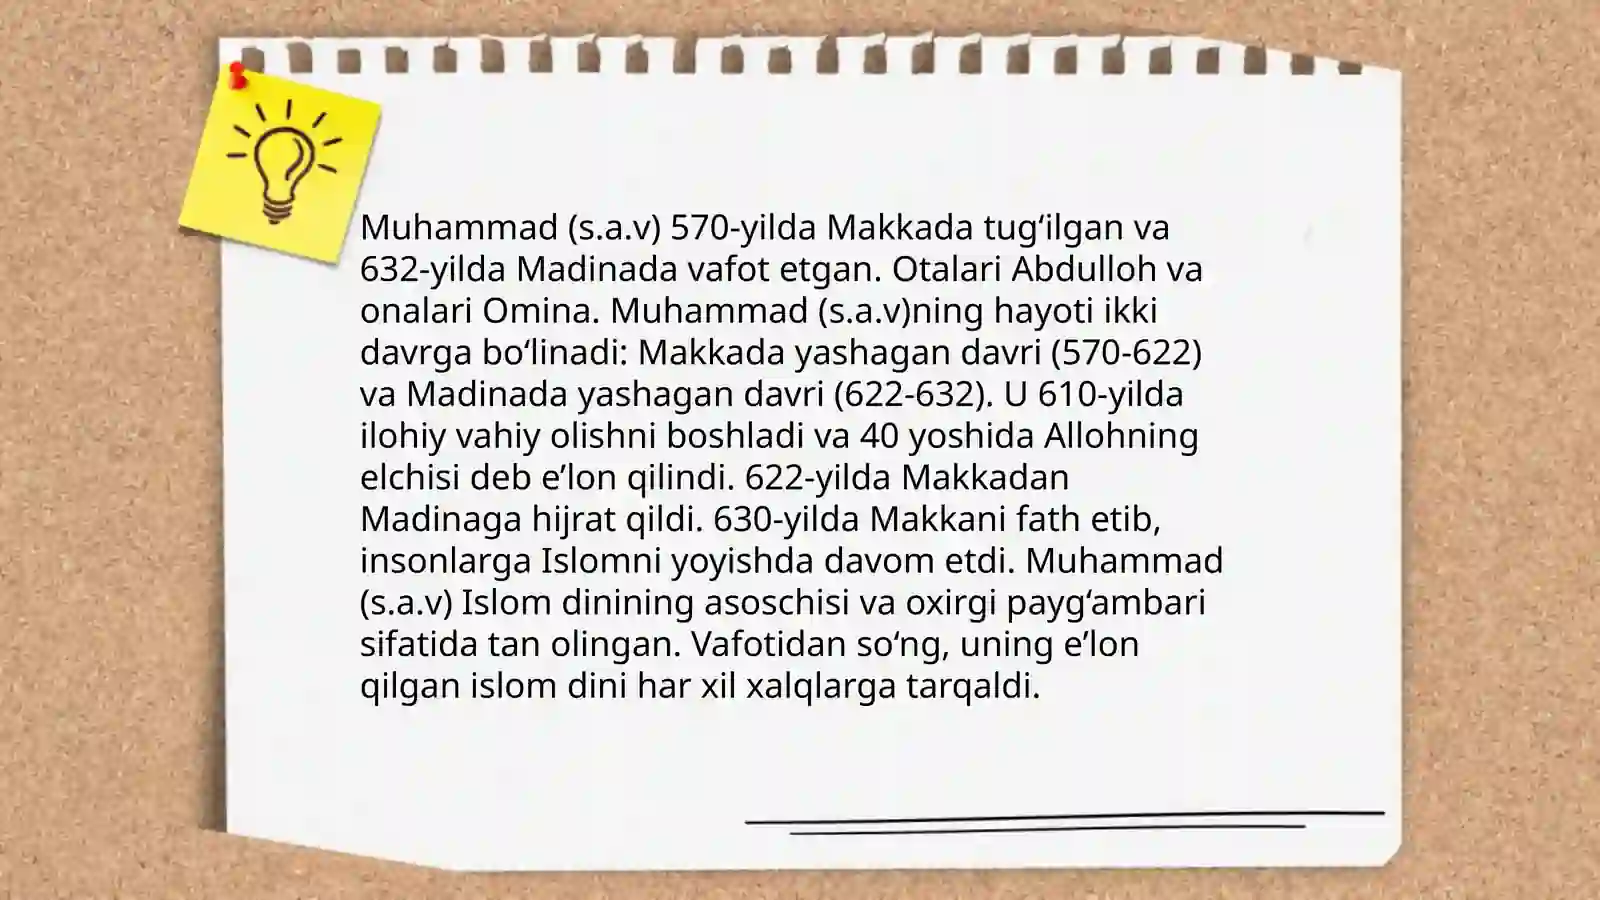 Muhammad (s.a.v) 570-yilda Makkada tug‘ilgan va
632-yilda Madinada vafot etgan. Otalari Abdulloh va
onalari Omina. Muhammad (s.a.v)ning hayoti ikki
davrga bo‘linadi: Makkada yashagan davri (570-622)
va Madinada yashagan davri (622-632). U 610-yilda
ilohiy vahiy olishni boshladi va 40 yoshida Allohning
elchisi deb e’lon qilindi. 622-yilda Makkadan
Madinaga hijrat qildi. 630-yilda Makkani fath etib,
insonlarga Islomni yoyishda davom etdi. Muhammad
(s.a.v) Islom dinining asoschisi va oxirgi payg‘ambari
sifatida tan olingan. Vafotidan so‘ng, uning e’lon
qilgan islom dini har xil xalqlarga tarqaldi.